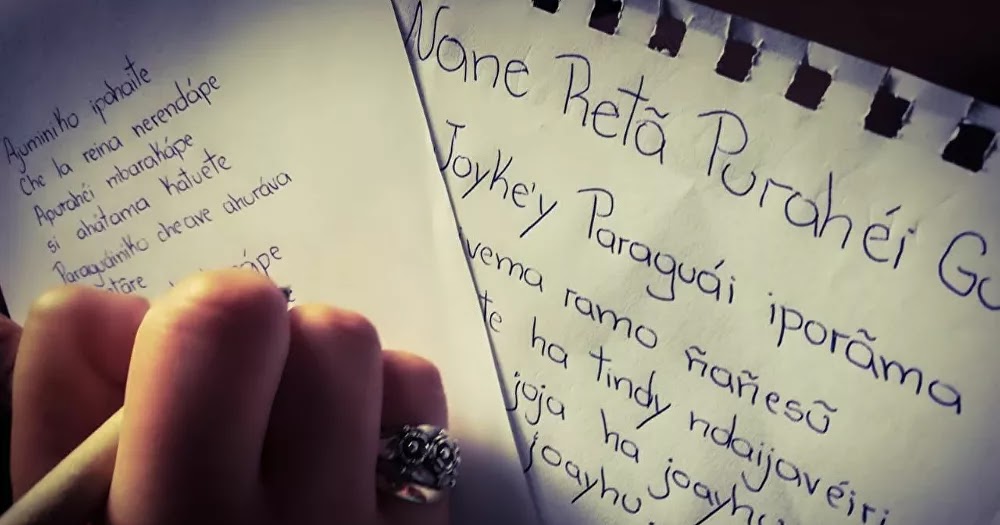 Ajuminiko ipahaite
Che la reina nerendápe
Apurahéi mbarakápe
si ahátama Katuete
Paraguáiniko cheave ahuráva
Ñane Retã Purahéi
Joyke'y Paraguái iporãma
vema ramo ñañesũ
te ha tindy ndaijavéiri
joja ha joayhu
joayhu.